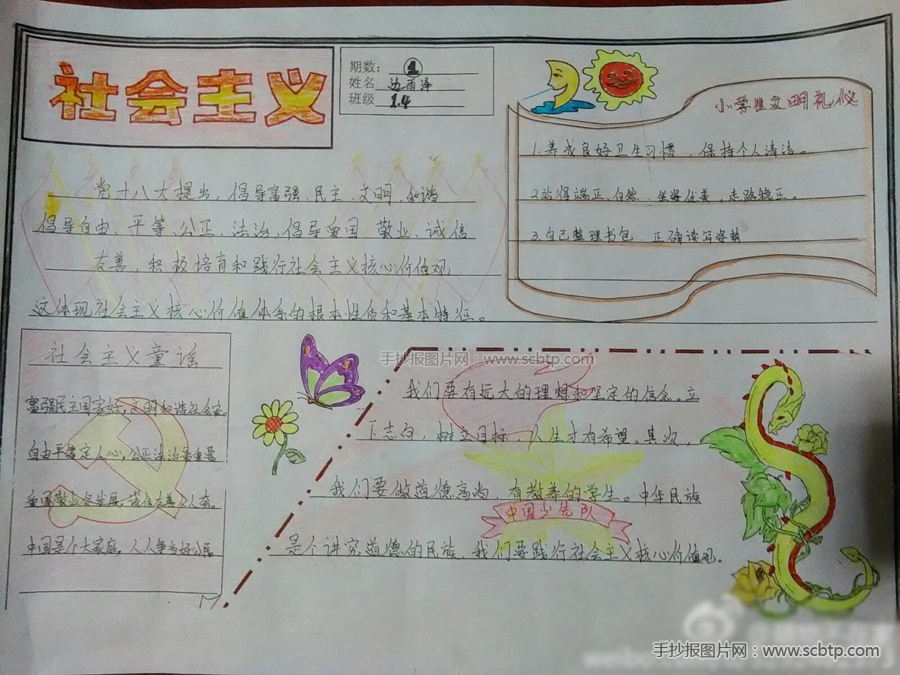 社会主义
期数: 1
姓名 边雨泽
班级 1.4
小学生文明礼仪
1.养成良好卫生习惯，保持个人清洁。
2.站得端正、自然、坐姿优美，走路稳正。
3.自己整理书包，正确读写姿势
党十八大提出，倡导富强、民主、文明、和谐
倡导自由、平等、公正、法治，倡导爱国 敬业、诚信
友善，积极培育和践行社会主义核心价值观
这体现社会主义核心价值体系的根本性质和基本特征。
社会主义童谣
富强民主国家好，文明和谐社会安。
自由平等定人心，公正法治最重要
爱国敬业促发展，诚信友善人人夸。
中国是个大家庭，人人争当好公民
手抄报图片网：www.scbtp.com
我们要有远大的理想和坚定的信念。立
下志向，树立目标，人生才有希望。其次，
我们要做道德高尚，有教养的学生。中华民族
中国少先队
是个讲究道德的民族 我们要践行社会主义核心价值观。
手抄报图片网：www.scbtp.com